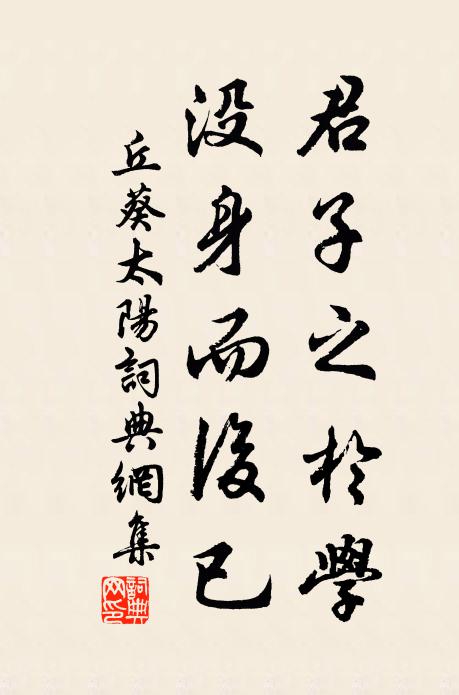 君子之於學
没身而後已
丘葵太陽詞典網集
詞典
网印